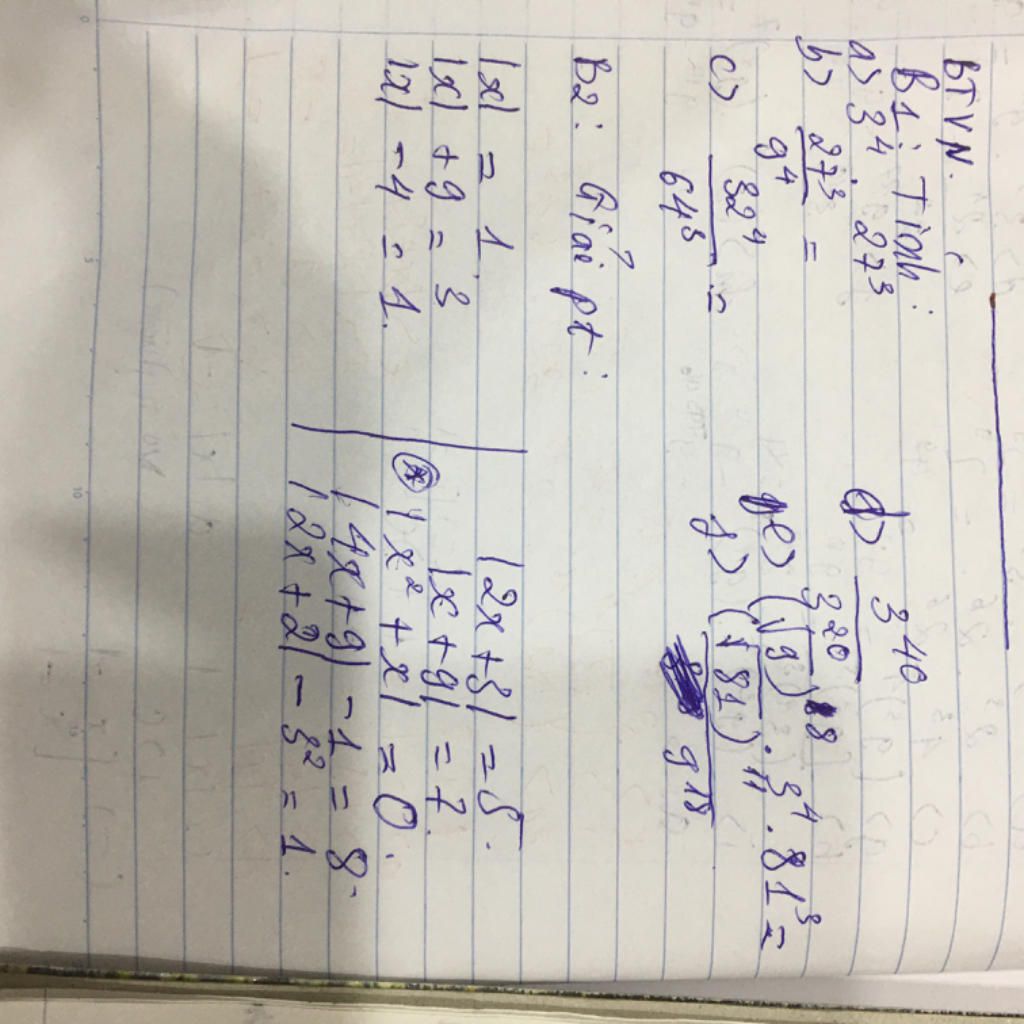 BTVN.
B1: Tính:
a) 3⁴ . 27³
b) 27³ / 9⁴ =
c) 32⁴ / 64³ =
d) 3⁴⁰ / 3²⁰
e) (√9)¹⁸ . 3⁴ . 81³ =
g) (√81)¹¹ / 9¹⁸
B2: Giải pt:
|x| = 1.
|x| + 9 = 3
|x| - 4 = 1.
|2x + 3| = 5.
|x + 9| = 7.
* |x² + x| = 0.
|4x + 9| - 1 = 8.
|2x + 2| - 3² = 1.